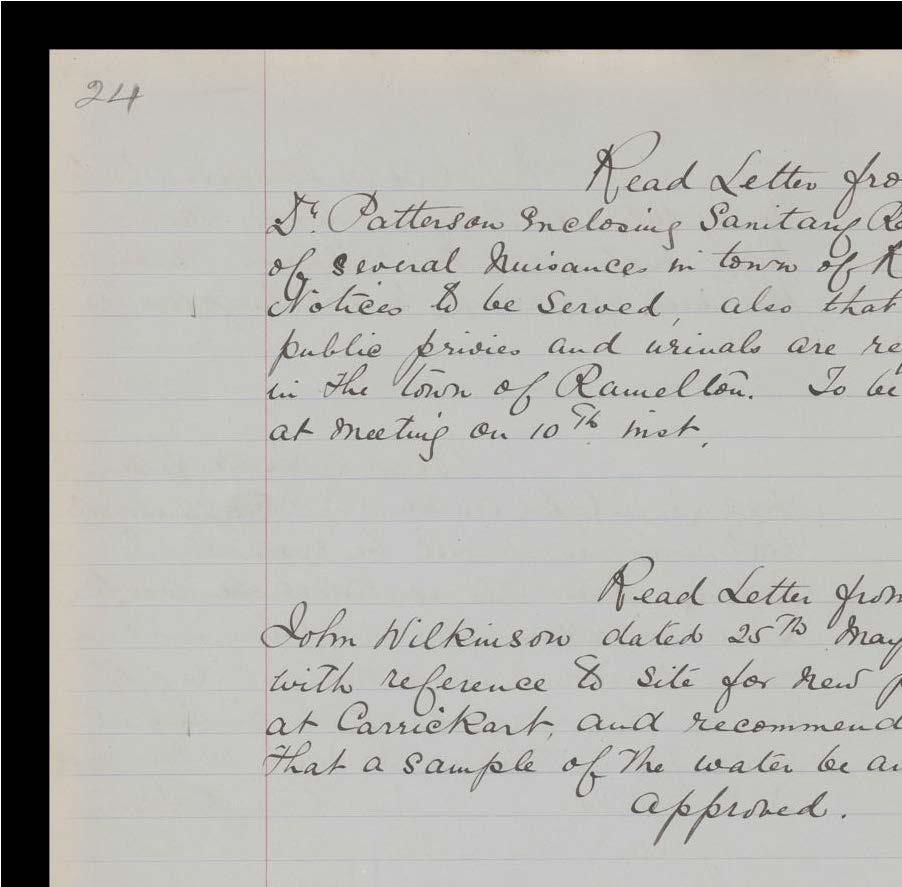 24
Read Letter fro
Dr. Patterson Enclosing Sanitary Re
of several Nuisances in town of R
Notices to be served, also that
public privies and urinals are re
in the town of Ramelton. To be
at meeting on 10th inst.
Read Letter from
John Wilkinson dated 25th May
with reference to site for new p
at Carrickart, and recommend
that a sample of the water be an
approved.